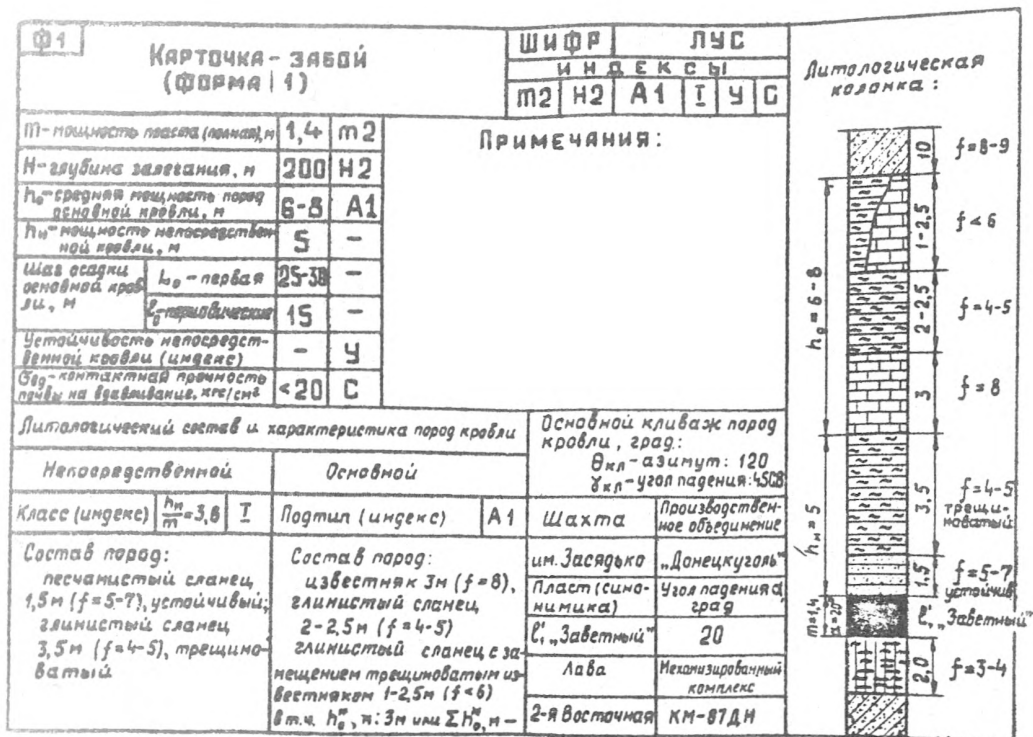 Ф1
КАРТОЧКА - ЗАБОЙ
(ФОРМА 1)
ШИФР ЛУС
ИНДЕКСЫ
m2 H2 A1 I У С
m - мощность пласта (полная), м 1,4 m2
H - глубина залегания, м 200 H2
h₀ - средняя мощность пород основной кровли, м 6-8 A1
hн - мощность непосредственной кровли, м 5 -
Шаг осадки основной кровли, м
L₀ - первая 25-30 -
периодические 15 -
Устойчивость непосредственной кровли (индекс) - У
контактная прочность почвы на вдавливание, кгс/см² <20 С
ПРИМЕЧАНИЯ:
Литологический состав и характеристика пород кровли
Непосредственной
Основной
Класс (индекс) hн/m = 3,6 I
Подтип (индекс) A1
Состав пород:
песчанистый сланец
1,5м (f=5-7), устойчивый;
глинистый сланец
3,5м (f=4-5), трещино-
ватый
Состав пород:
известняк 3м (f=8),
глинистый сланец
2-2,5м (f=4-5)
глинистый сланец с за-
мещением трещиноватым из-
вестняком 1-2,5м (f<6)
в т.ч. 3м или
Основной кливаж пород
кровли, град:
θкл - азимут: 120
γкл - угол падения: 45СВ
Шахта
Производствен-
ное объединение
им. Засядько
„Донецкуголь"
Пласт (сино-
нимика)
Угол падения α,
град
ℓ'₁ „Заветный"
20
Лава
Механизированный
комплекс
2-я Восточная
КМ-87ДН
Литологическая
колонка:
10 f=8-9
1-2,5 f<6
h₀=6-8
2-2,5 f=4-5
3 f=8
hн=5
3,5 f=4-5
трещи-
новатый
1,5 f=5-7
устойчив.
m=1,4
α=20°
ℓ'₁ „Заветный"
2,0 f=3-4